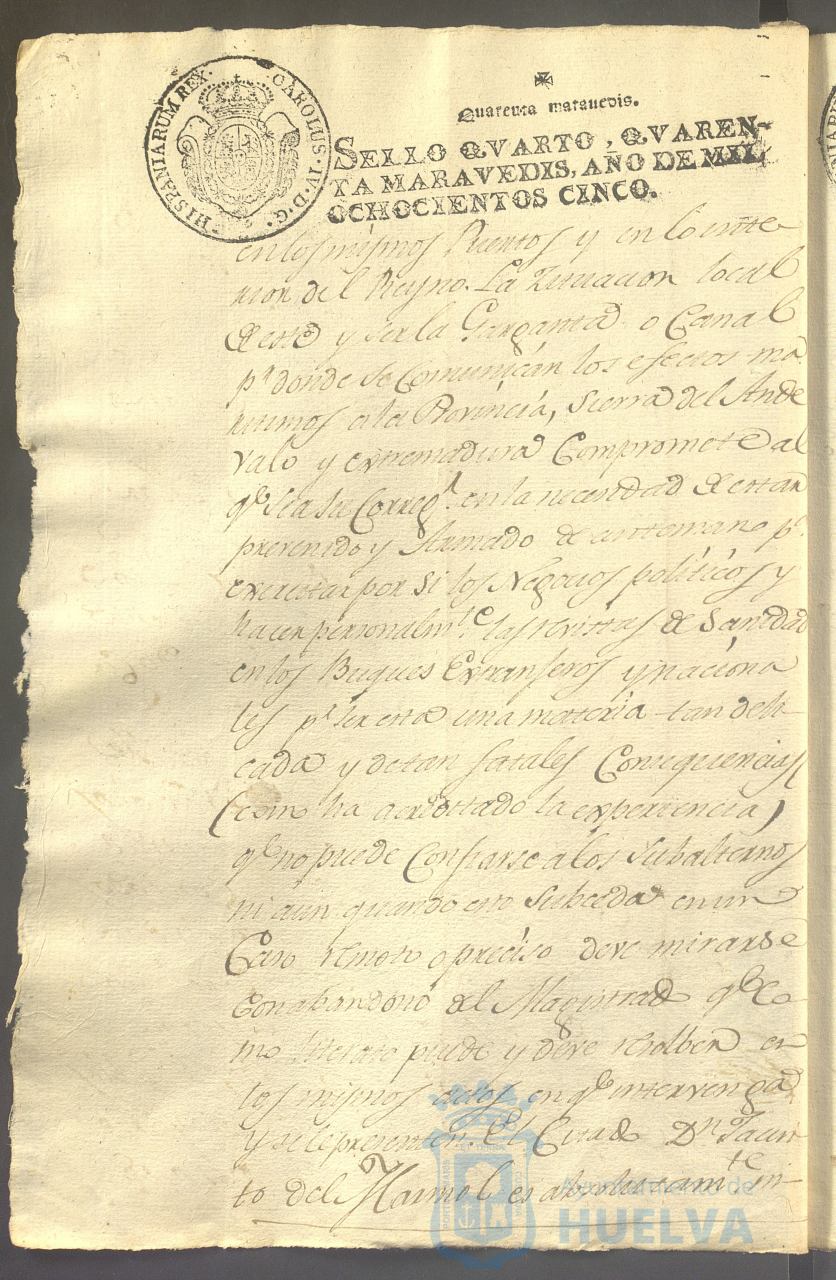 HISPANIARUM REX · CAROLUS · IV · D · G ·
Quarenta maravedis.
SELLO QVARTO, QVAREN-
TA MARAVEDIS, AÑO DE MIL
OCHOCIENTOS CINCO.
en los mismos Puertos y en lo inte
rior del Reyno. La situacion local
de esta y ser la Garganta o Canal
pr. donde se Comunican los efectos ma
ritimos a la Provincia, Sierra del Ande
valo y extremadura Compromete al
qe. sea su Corregr. en la necesidad de estar
prevenido y Armado de antemano pa.
executar por si los Negocios politicos y
hacer personalmte. las visitas de Sanidad
en los Buques Extranjeros y naciona
les pr. ser esta una materia tan deli-
cada y de tan fatales Consequencias
(como ha acreditado la experiencia)
qe. no puede Confiarse a los Subalternos
ni aun quando esto Subceda en un
Caso remoto o preciso deve mirarse
con abandono del Magistrado qe. co
mo literato puede y deve resolber en
los mismos actos en qe. intervenga
y se le presenten. El Citado Dn. Jacin
to del Marmol es absolutamte. in-
Ayuntamiento de
HUELVA